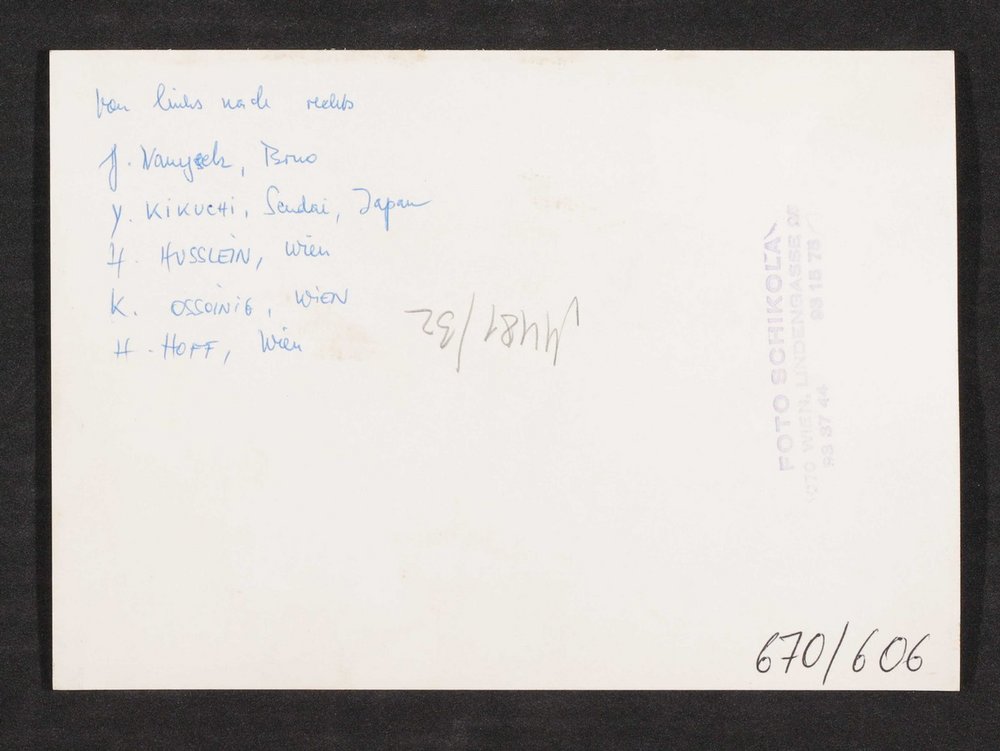 von links nach rechts
J. Namyslek, Brno
Y. KIKUCHI, Sendai, Japan
H. HUSSLEIN, Wien
K. OSSOINIG, WIEN
H. HOFF, Wien
4481/32
FOTO SCHIKOLA
1070 WIEN, LINDENGASSE
93 37 44
670/606